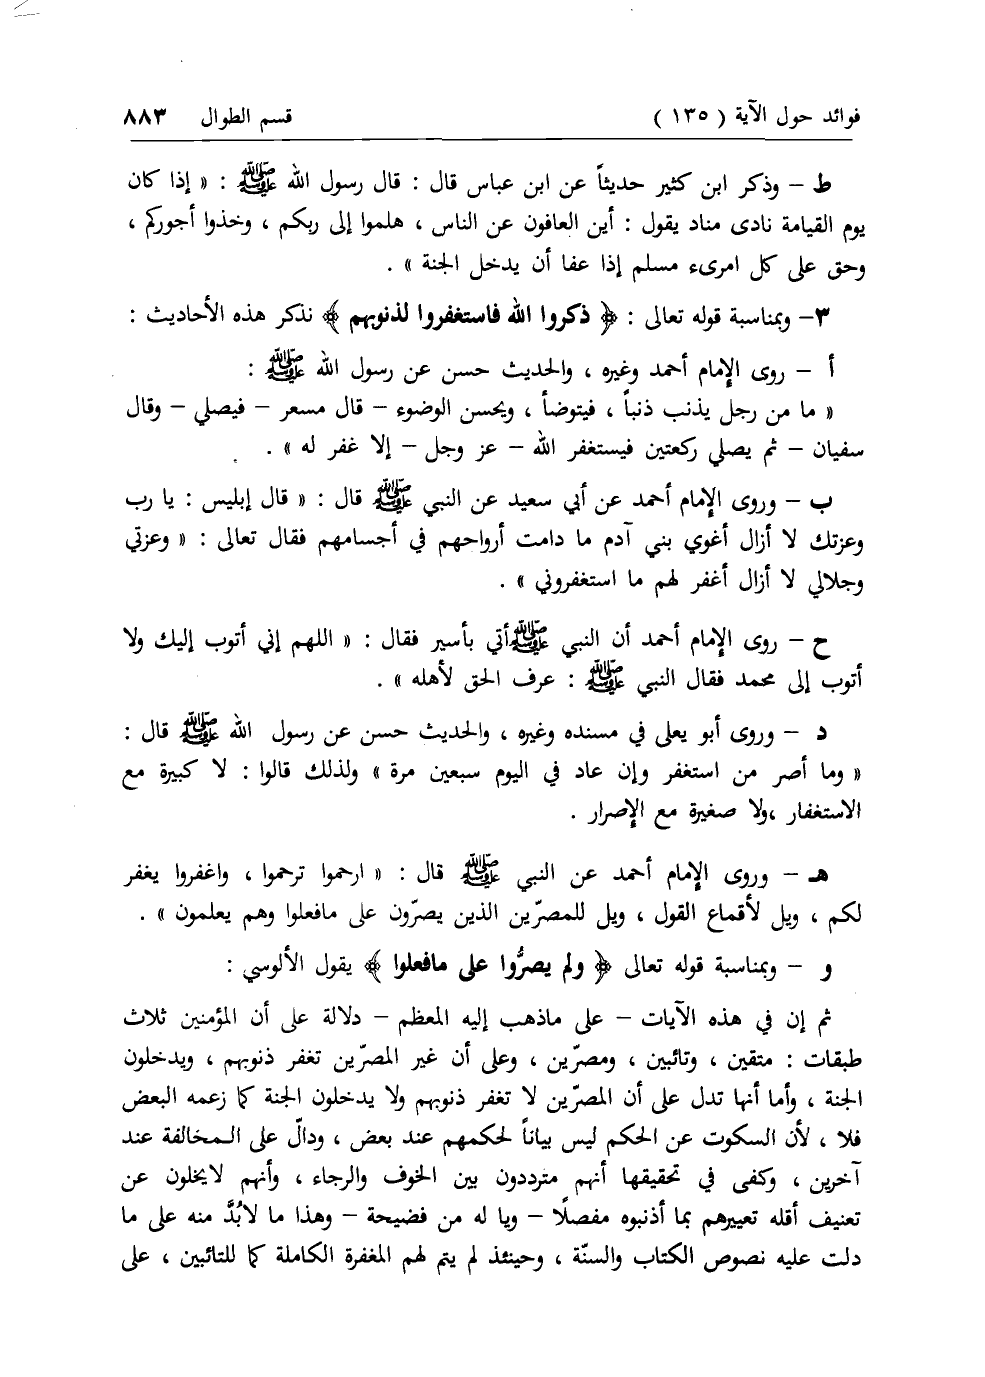 فوائد حول الآية ( ١٣٥ ) قسم الطوال ٨٨٣
ط – وذكر ابن كثير حديثاً عن ابن عباس قال : قال رسول الله ﷺ : « إذا كان
يوم القيامة نادى مناد يقول : أين العافون عن الناس ، هلموا إلى ربكم ، وخذوا أجوركم ،
وحق على كل امرىء مسلم إذا عفا أن يدخل الجنة » .
٣– وبمناسبة قوله تعالى : ﴿ ذكروا الله فاستغفروا لذنوبهم ﴾ نذكر هذه الأحاديث :
أ – روى الإمام أحمد وغيره ، والحديث حسن عن رسول الله ﷺ :
« ما من رجل يذنب ذنباً ، فيتوضأ ، ويحسن الوضوء – قال مسعر – فيصلي – وقال
سفيان – ثم يصلي ركعتين فيستغفر الله – عز وجل – إلا غفر له » .
ب – وروى الإمام أحمد عن أبي سعيد عن النبي ﷺ قال : « قال إبليس : يا رب
وعزتك لا أزال أغوي بني آدم ما دامت أرواحهم في أجسامهم فقال تعالى : « وعزتي
وجلالي لا أزال أغفر لهم ما استغفروني » .
ح – روى الإمام أحمد أن النبي ﷺ أتي بأسير فقال : « اللهم إني أتوب إليك ولا
أتوب إلى محمد فقال النبي ﷺ : عرف الحق لأهله » .
د – وروى أبو يعلى في مسنده وغيره ، والحديث حسن عن رسول الله ﷺ قال :
« وما أصر من استغفر وإن عاد في اليوم سبعين مرة » ولذلك قالوا : لا كبيرة مع
الاستغفار ،ولا صغيرة مع الإصرار .
هـ – وروى الإمام أحمد عن النبي ﷺ قال : « ارحموا ترحموا ، واغفروا يغفر
لكم ، ويل لأقماع القول ، ويل للمصرّين الذين يصرّون على مافعلوا وهم يعلمون » .
و – وبمناسبة قوله تعالى ﴿ ولم يصرُّوا على مافعلوا ﴾ يقول الألوسي :
ثم إن في هذه الآيات – على ماذهب إليه المعظم – دلالة على أن المؤمنين ثلاث
طبقات : متقين ، وتائبين ، ومصرّين ، وعلى أن غير المصرّين تغفر ذنوبهم ، ويدخلون
الجنة ، وأما أنها تدل على أن المصرّين لا تغفر ذنوبهم ولا يدخلون الجنة كما زعمه البعض
فلا ، لأن السكوت عن الحكم ليس بياناً لحكمهم عند بعض ، ودالّ على المخالفة عند
آخرين ، وكفى في تحقيقها أنهم مترددون بين الخوف والرجاء ، وأنهم لايخلون عن
تعنيف أقله تعييرهم بما أذنبوه مفصلًا – ويا له من فضيحة – وهذا ما لابُدَّ منه على ما
دلت عليه نصوص الكتاب والسنّة ، وحينئذ لم يتم لهم المغفرة الكاملة كما للتائبين ، على